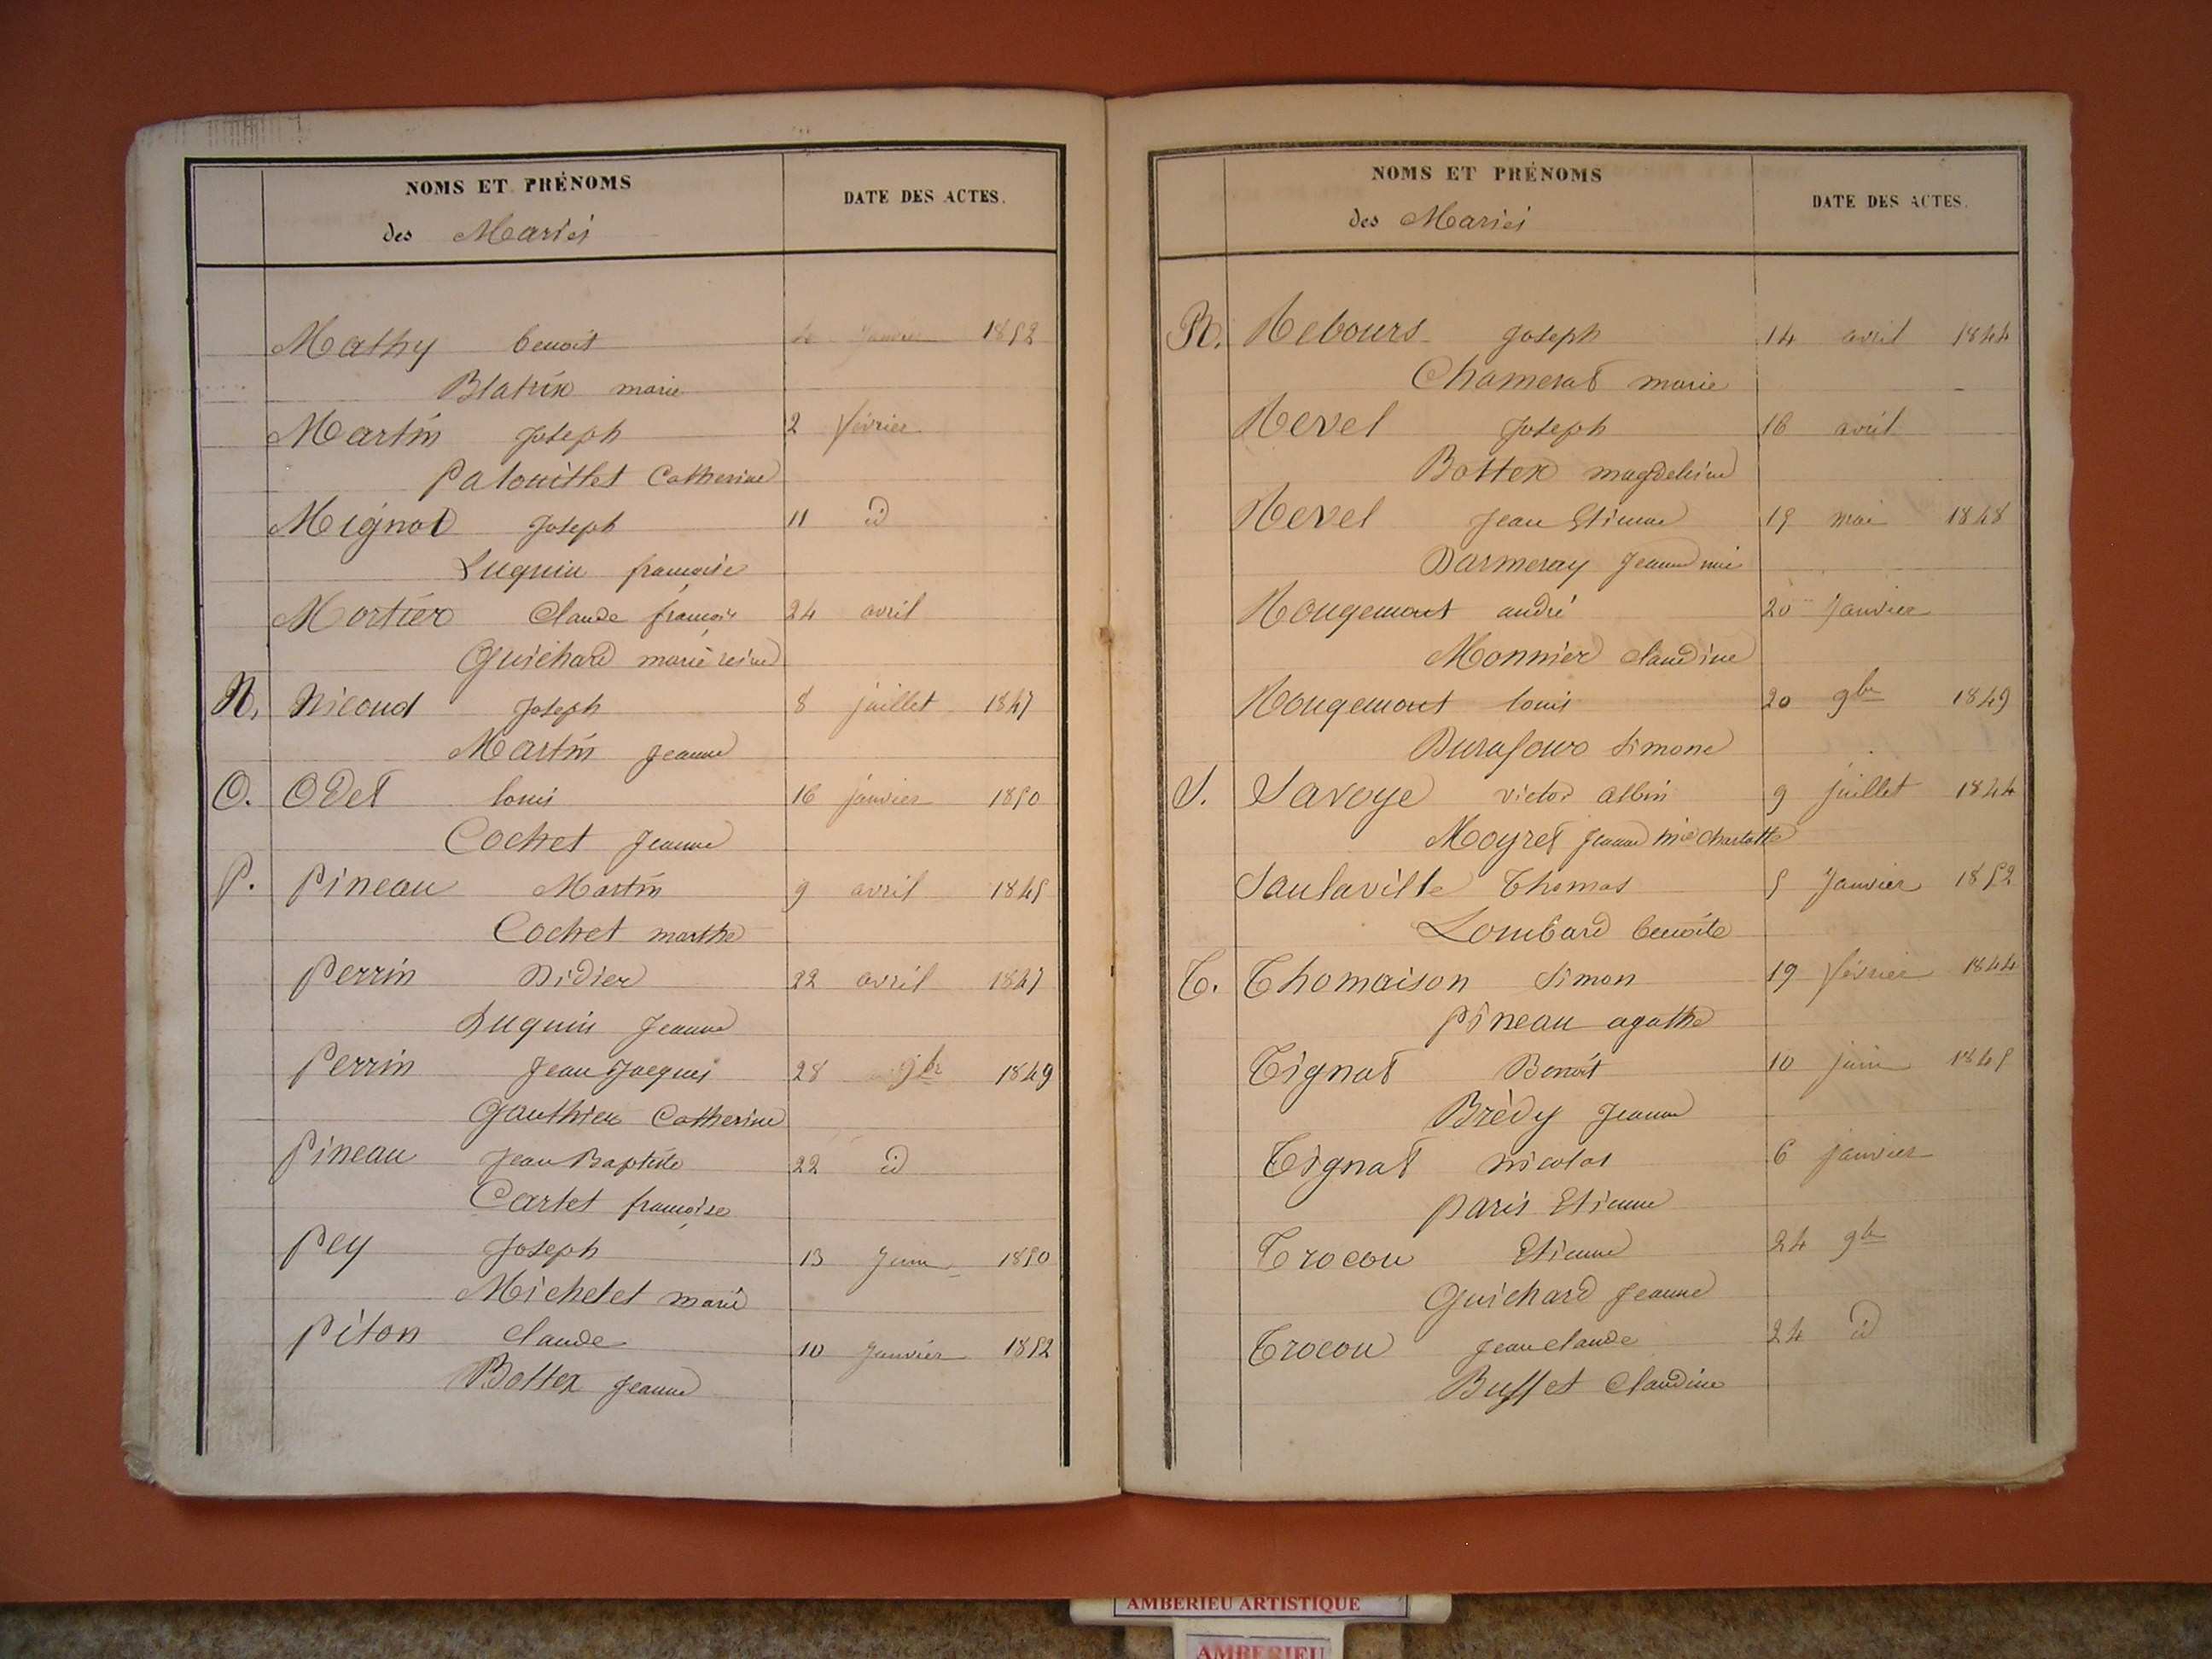 NOMS ET PRÉNOMS
des Mariés
DATE DES ACTES.
Mathy benoit janvier 1852
Blatrix marie
Martin Joseph 2 février
Palouillet Catherine
Mignot Joseph 11 id
Luquin françoise
Mortier Claude françois 24 avril
Guichard marie reine
N. Nicoud Joseph 8 juillet 1847
Martin Jeanne
O. Odet louis 16 janvier 1850
Cochet Jeanne
P. Pineau Martin 9 avril 1845
Cochet marthe
Perrin Didier 22 avril 1847
Luquin Jeanne
Perrin Jean Jacques 28 9bre 1849
Gauthier Catherine
Pineau Jean Baptiste 22 id
Cartet françoise
Pey Joseph 13 Juin 1850
Michelet marie
Piton Claude 10 Janvier 1852
Bottex Jeanne
NOMS ET PRÉNOMS
des Mariés
DATE DES ACTES.
R. Rebours Joseph 14 avril 1844
Chamerat marie
Revel Joseph 16 avril
Bottex magdeleine
Revel Jean Etienne 19 mai 1848
Darmeray Jeanne mie
Rougemont andré 20 Janvier
Monnier Claudine
Rougemont louis 20 9bre 1849
Durafour Simone
S. Savoye victor albin 9 juillet 1844
Moyret Jeanne mie charlotte
Saulaville Thomas 5 Janvier 1852
Lombard benoite
T. Thomaison Simon 19 février 1844
Pineau agathe
Tignat Benoit 10 juin 1845
Brédy Jeanne
Tignat nicolas 6 janvier
Paris Etienne
Trocou Etienne 24 9bre
Guichard Jeanne
Trocou Jean Claude 24 id
Buffet Claudine
AMBERIEU ARTISTIQUE
AMBERIEU